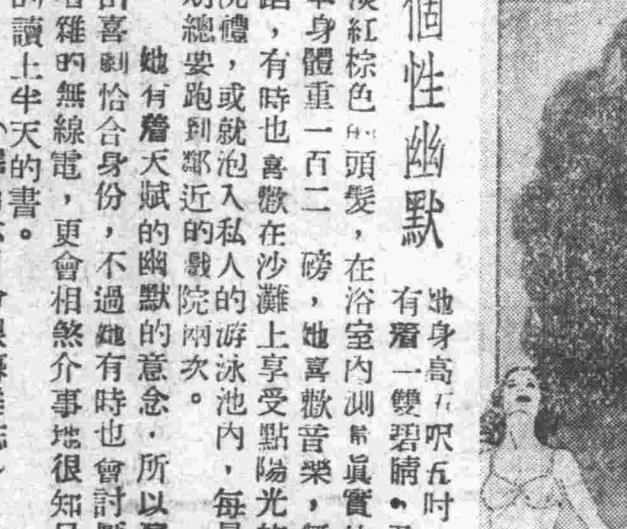 個性幽默
她身高五呎五吋
有着一雙碧睛，
淡紅棕色的頭髮，在浴室內測量眞實
身體重一百二 磅，她喜歡音樂，
，有時也喜歡在沙灘上享受點陽光
禮，或就泡入私人的游泳池內，每星
總要跑到鄰近的戲院兩次。
她有着天賦的幽默的意念，所以
喜劇恰合身份，不過她有時也會討厭
雜的無線電，更會相煞介事地很知
讀上半天的書。